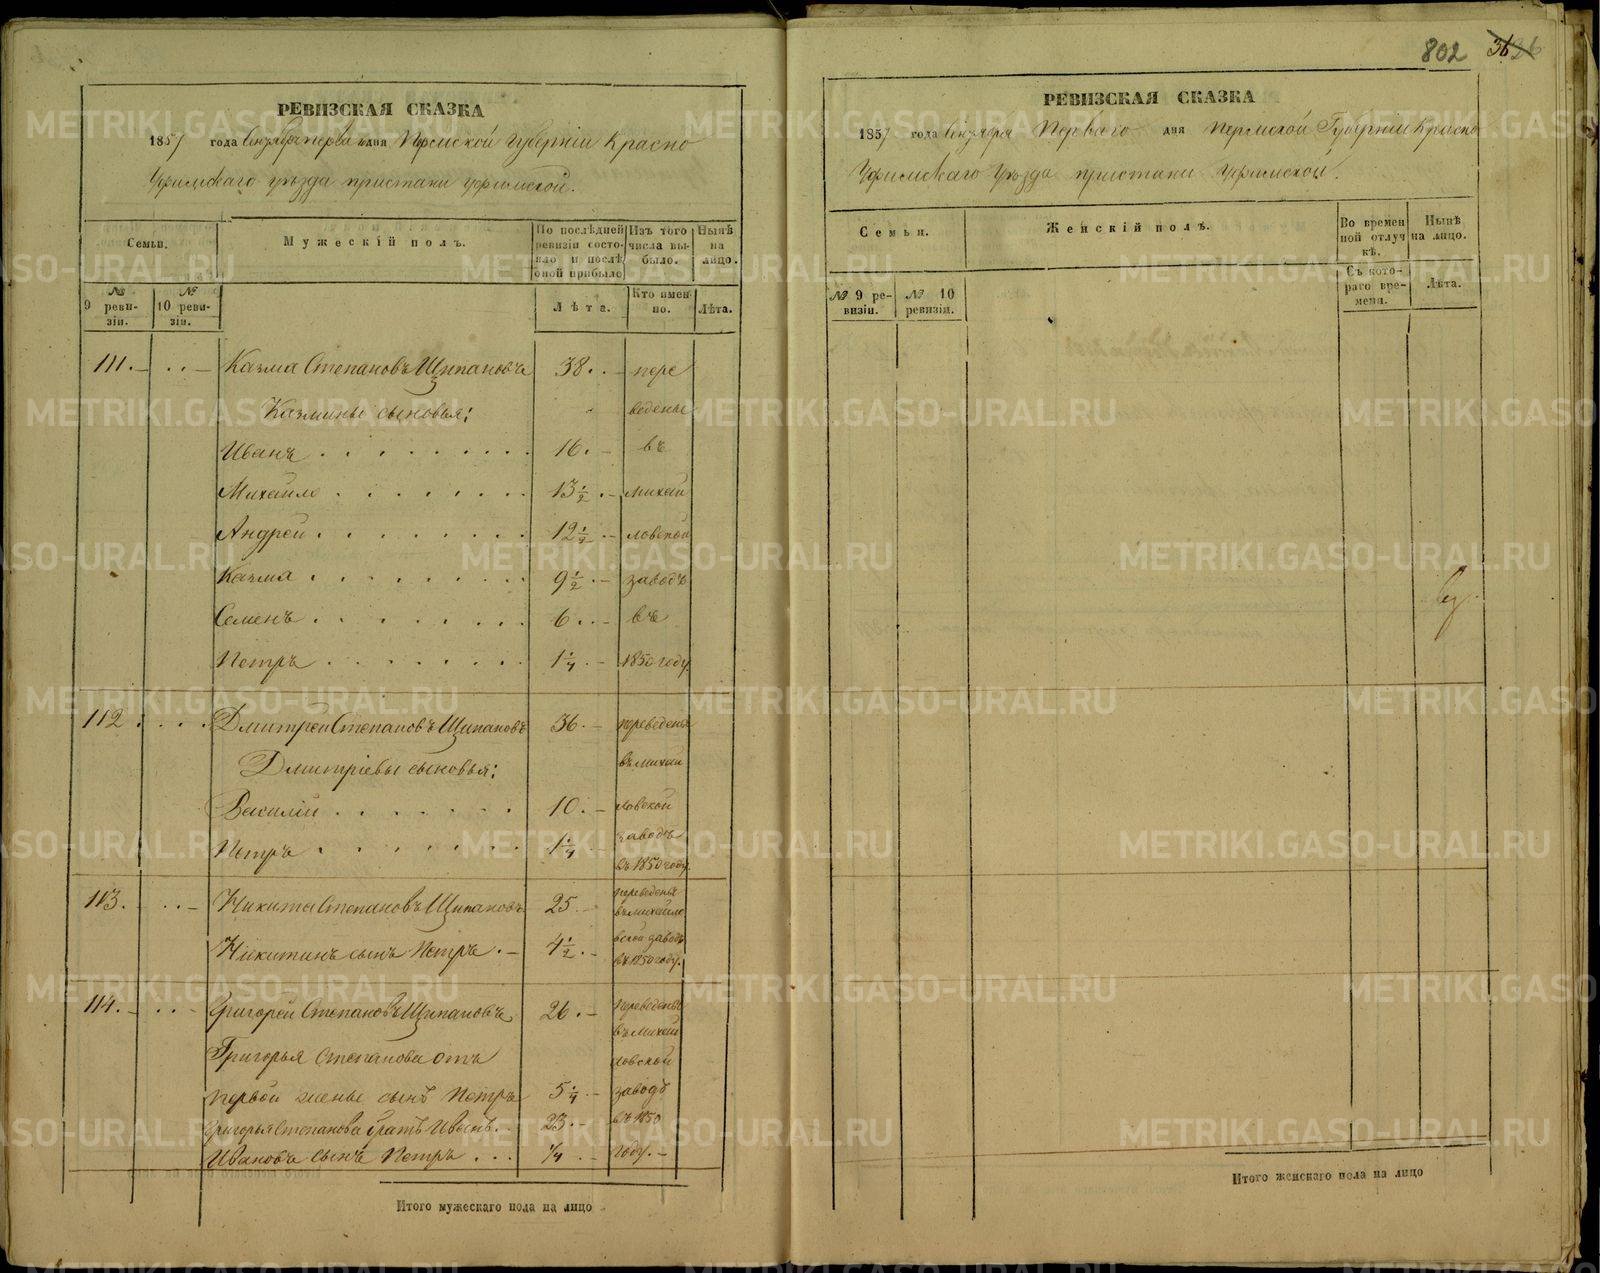 РЕВИЗСКАЯ СКАЗКА
1857 года Сентября перва го дня Пермской Губерніи Красно
Уфимскаго уѣзда пристани Уфимской.
Семьи.
Мужескій полъ.
По послѣдней ревизіи состояло и послѣ оной прибыло
Изъ того числа выбыло.
Нынѣ на лицо.
№ 9 ревизіи.
№ 10 ревизіи.
Лѣта.
Кто именно.
Лѣта.
111. Казма Степановъ Щипановъ 38. пере
Казмины сыновья: ведены
Иванъ 16. въ
Михайло 13 1/2 михай
Андрей 12 1/2 ловской
Казма 9 1/2 заводъ
Семенъ 6. въ
Петръ 1 1/4 1850 году
112. Дмитрей Степановъ Щипановъ 36. переведены
Дмитріевы сыновья: въ михай
Василій 10. ловской
Петръ 1 1/4 заводъ
въ 1850 году.
113. Никита Степановъ Щипановъ 25 переведены
въ михайло
Никитинъ сынъ Петръ. 4 1/2 вской заводъ
въ 1850 году.
114. Григорей Степановъ Щипановъ 26. переведены
въ михай
Григорья Степанова отъ ловской
первой жены сынъ Петръ 5 1/4 заводъ
Григорья Степанова братъ Иванъ. 23. въ 1850
Ивановъ сынъ Петръ 1/4 году.
Итого мужескаго пола на лицо
802 36 26
РЕВИЗСКАЯ СКАЗКА
1857 года Сентября Перваго дня Пермской Губерніи Красно
Уфимскаго Уѣзда пристани Уфимской.
Семьи.
Женскій полъ.
Во временной отлучкѣ.
Нынѣ на лицо.
№ 9 ревизіи.
№ 10 ревизіи.
Съ котораго времени.
Лѣта.
Итого женскаго пола на лицо
METRIKI.GASO-URAL.RU